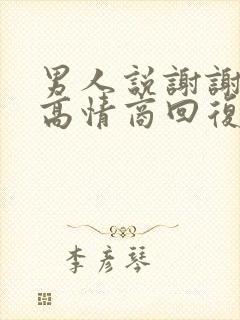 男人說謝謝
高情商回復
李彥琴